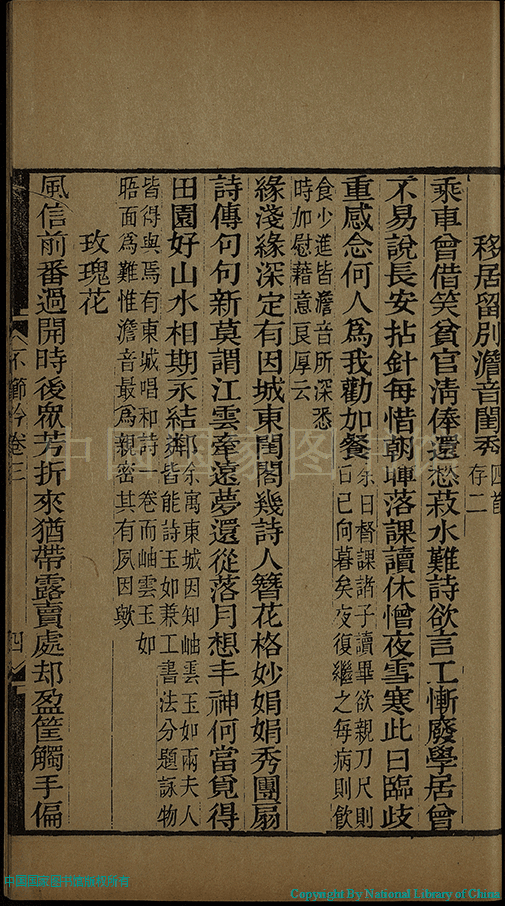 移居留別澹音閨秀四首存二
乘車曾借笑貧官清俸還愁菽水難詩欲言工慚廢學居曾
不易說長安拈針每惜朝暉落課讀休憎夜雪寒此日臨歧
重感念何人爲我勸加餐余日督課諸子讀畢欲親刀尺則
日已向暮矣夜復繼之每病則飮
食少進皆澹音所深悉
時加慰藉意良厚云
緣淺緣深定有因城東閨閣幾詩人簪花格妙娟娟秀團扇
詩傳句句新莫謂江雲牽遠夢還從落月想丰神何當覓得
田園好山水相期永結鄰余寓東城因知岫雲玉如兩夫人
皆能詩玉如兼工書法分題詠物
皆得與焉有東城唱和詩一卷而岫雲玉如
晤面爲難惟澹音最爲親密其有夙因歟
玫瑰花
風信前番過開時後衆芳折來猶帶露賣處却盈筐觸手偏
不節吟卷三
四
中国国家图书馆
中国国家图书馆版权所有
Copyright By National Library of China